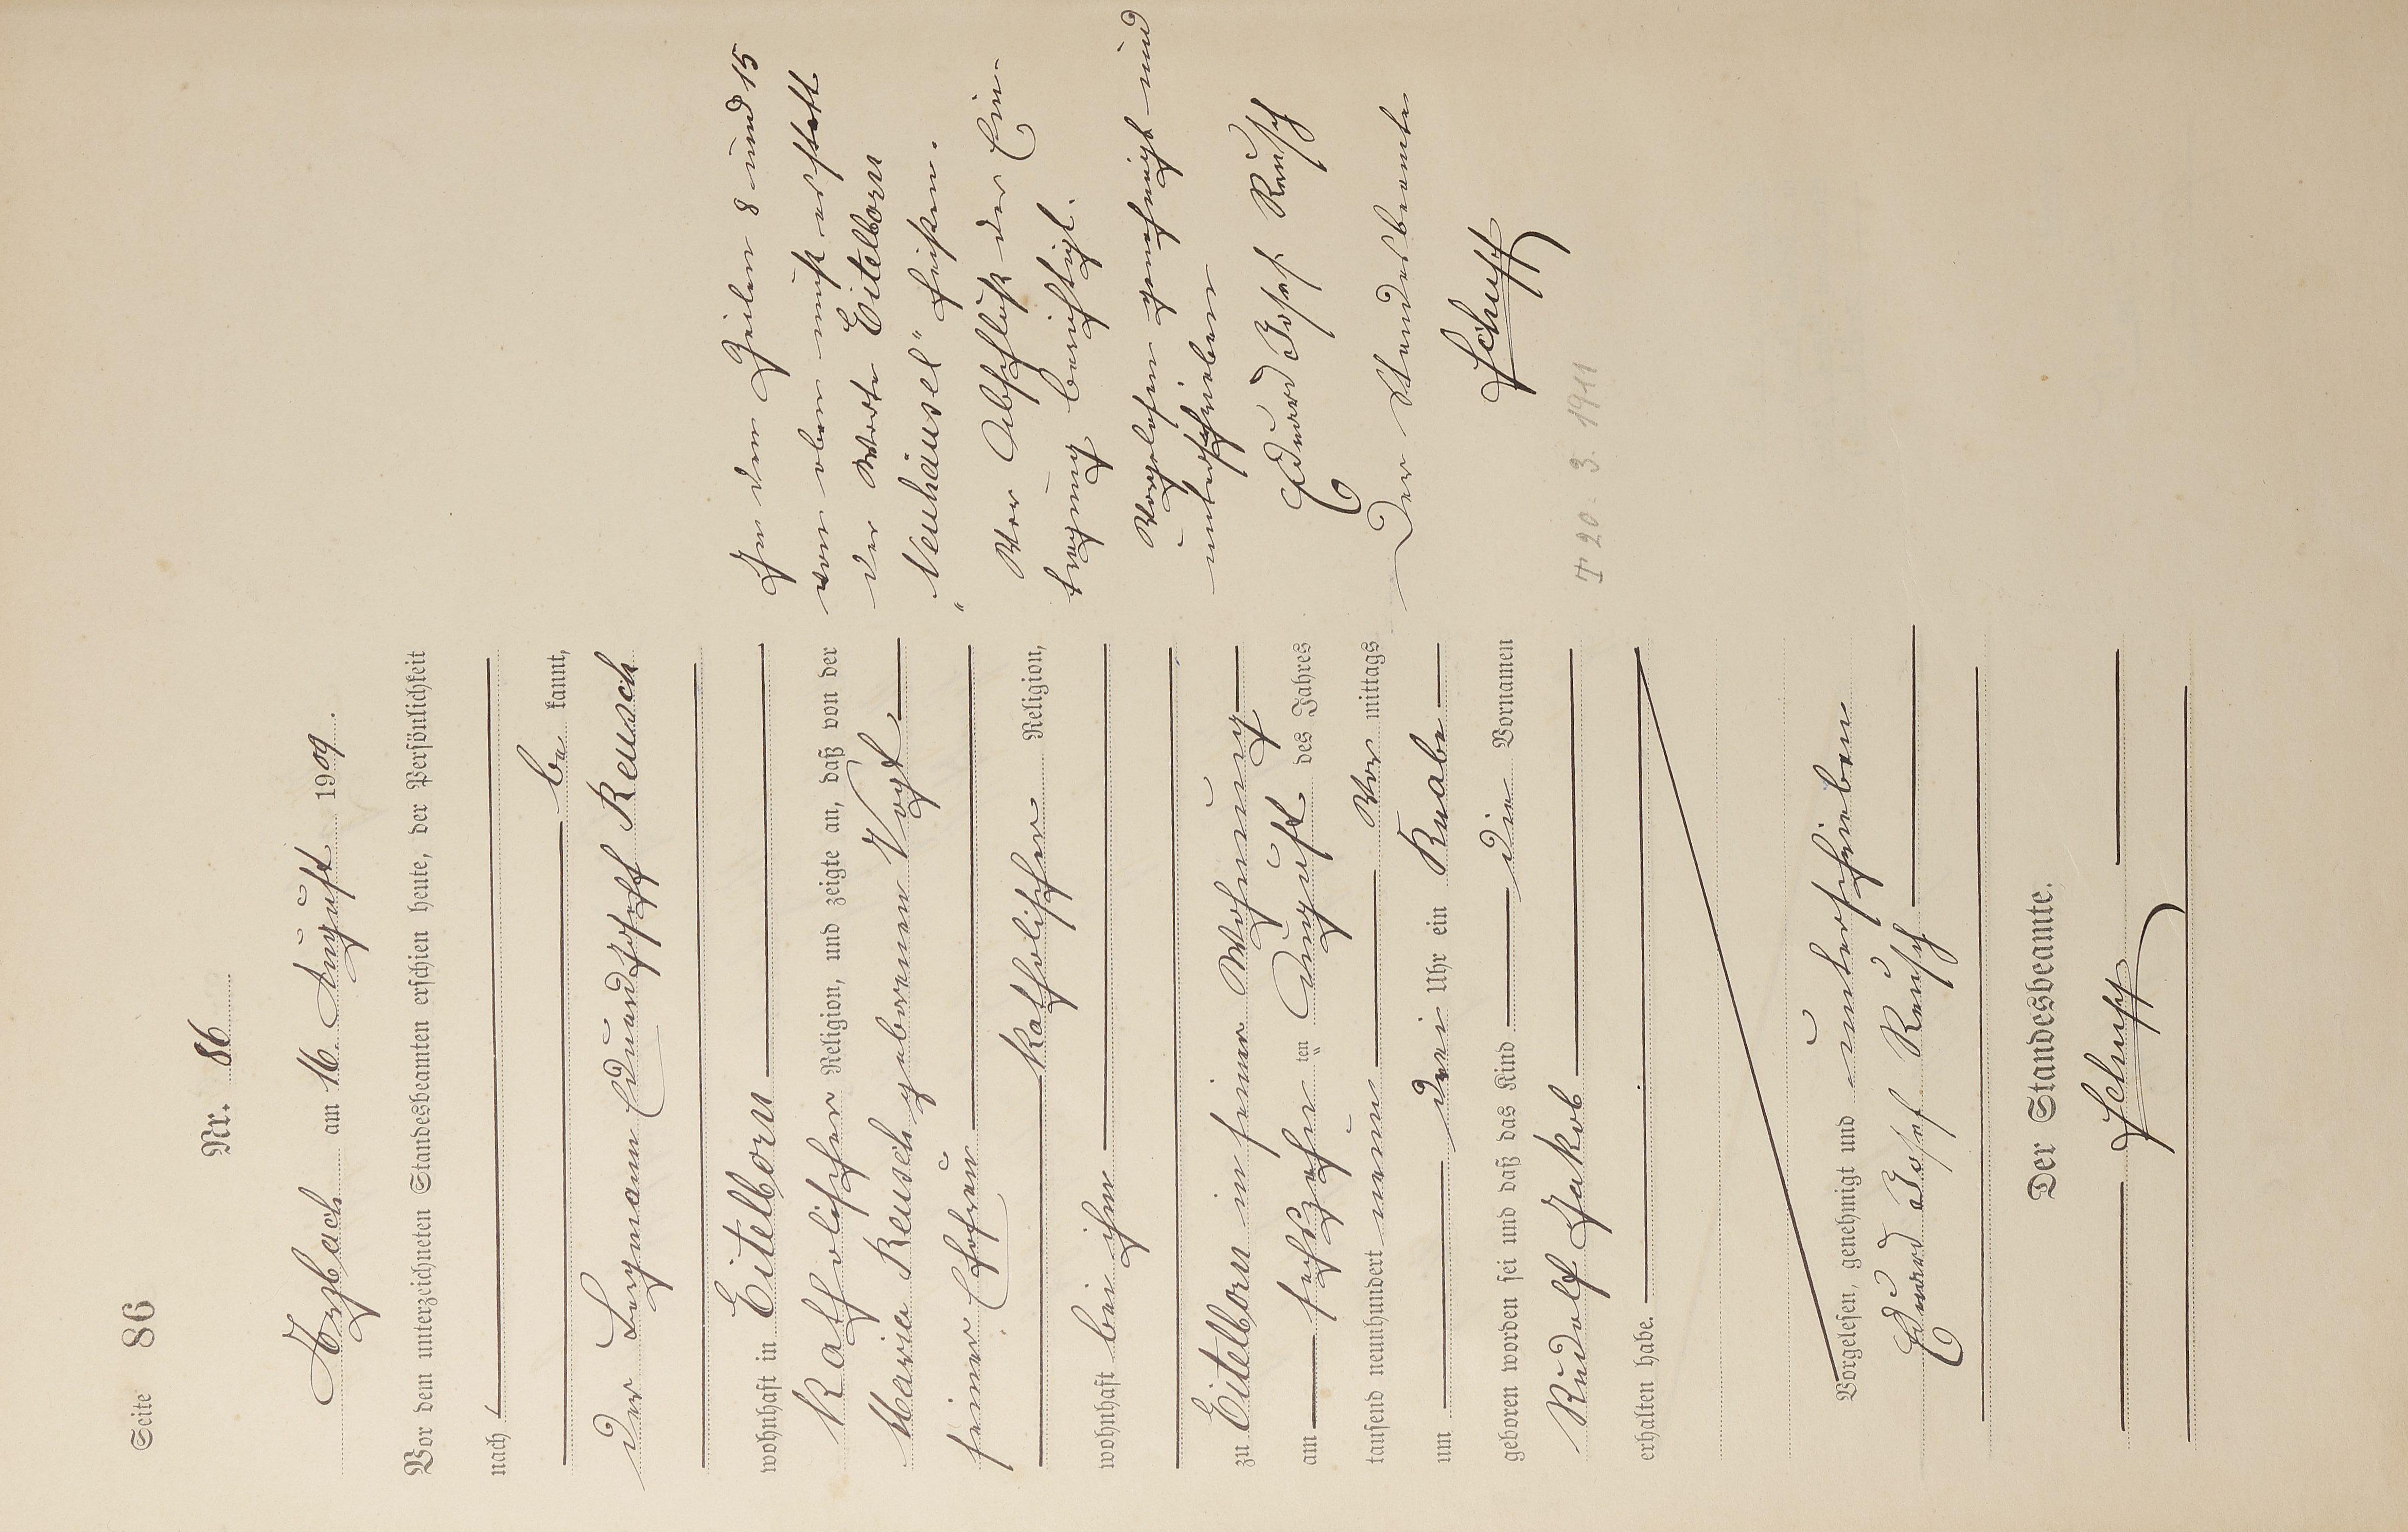 Seite 86
Nr. 86
Arzbach am 16. August 1909.
Vor dem unterzeichneten Standesbeamten erschien heute, der Persönlichkeit
nach
be kannt,
der Bergmann Eduard Joseff Reusch
wohnhaft in Eitelborn
katholischer Religion, und zeigte an, daß von der
Maria Reusch geborenen Vogt
seiner Ehefrau
katholischer Religion,
wohnhaft bei ihm
zu Eitelborn in seiner Wohnung
am sechszehn ten August des Jahres
tausend neunhundert neun Vor mittags
um drei Uhr ein Knabe
geboren worden sei und daß das Kind die Vornamen
Rudolf Jakob
erhalten habe.
Vorgelesen, genehmigt und unterschrieben
Eduard Josef Reusch
Der Standesbeamte.
Schupp
In den Zeilen 8 und 15
von oben muß anstatt
der Worte Eitelborn
"Neuhäusel" heißen.
Vor Abschluß der Ein-
tragung berichtigt.
Vorgelesen genehmigt und
unterschrieben
Eduard Josef Reusch
Der Standesbeamte
Schupp
T 20. 3. 1911